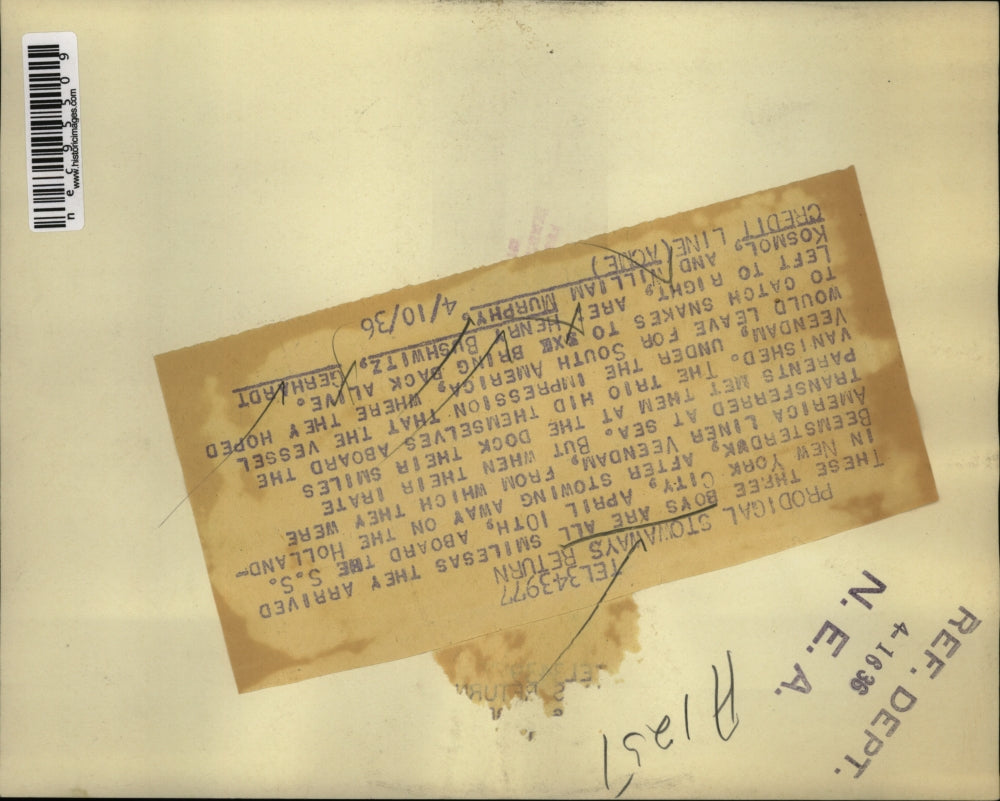 TEL343977
PRODIGAL STOWAWAYS RETURN
THESE THREE BOYS ARE ALL SMILESAS THEY ARRIVED
IN NEW YORK CITY, APRIL 10TH, ABOARD THE S.S.
BEEMSTERDYK, AFTER STOWING AWAY ON THE HOLLAND-
AMERICA LINER VEENDAM, FROM WHICH THEY WERE
TRANSFERRED AT SEA. BUT, WHEN THEIR IRATE
PARENTS MET THEM AT THE DOCK THEIR SMILES
VANISHED. THE TRIO HID THEMSELVES ABOARD THE
VEENDAM, UNDER THE IMPRESSION THAT THE VESSEL
WOULD LEAVE FOR SOUTH AMERICA, WHERE THEY HOPED
TO CATCH SNAKES TO BRING BACK ALIVE.
LEFT TO RIGHT, ARE HENRY BUSHWITZ, GERHARDT
KOSMOL, AND WILLIAM MURPHY.
CREDIT LINE (ACME) 4/10/36
REF. DEPT.
4-16 36
N. E. A.
A1251
nec95509
www.historicimages.com